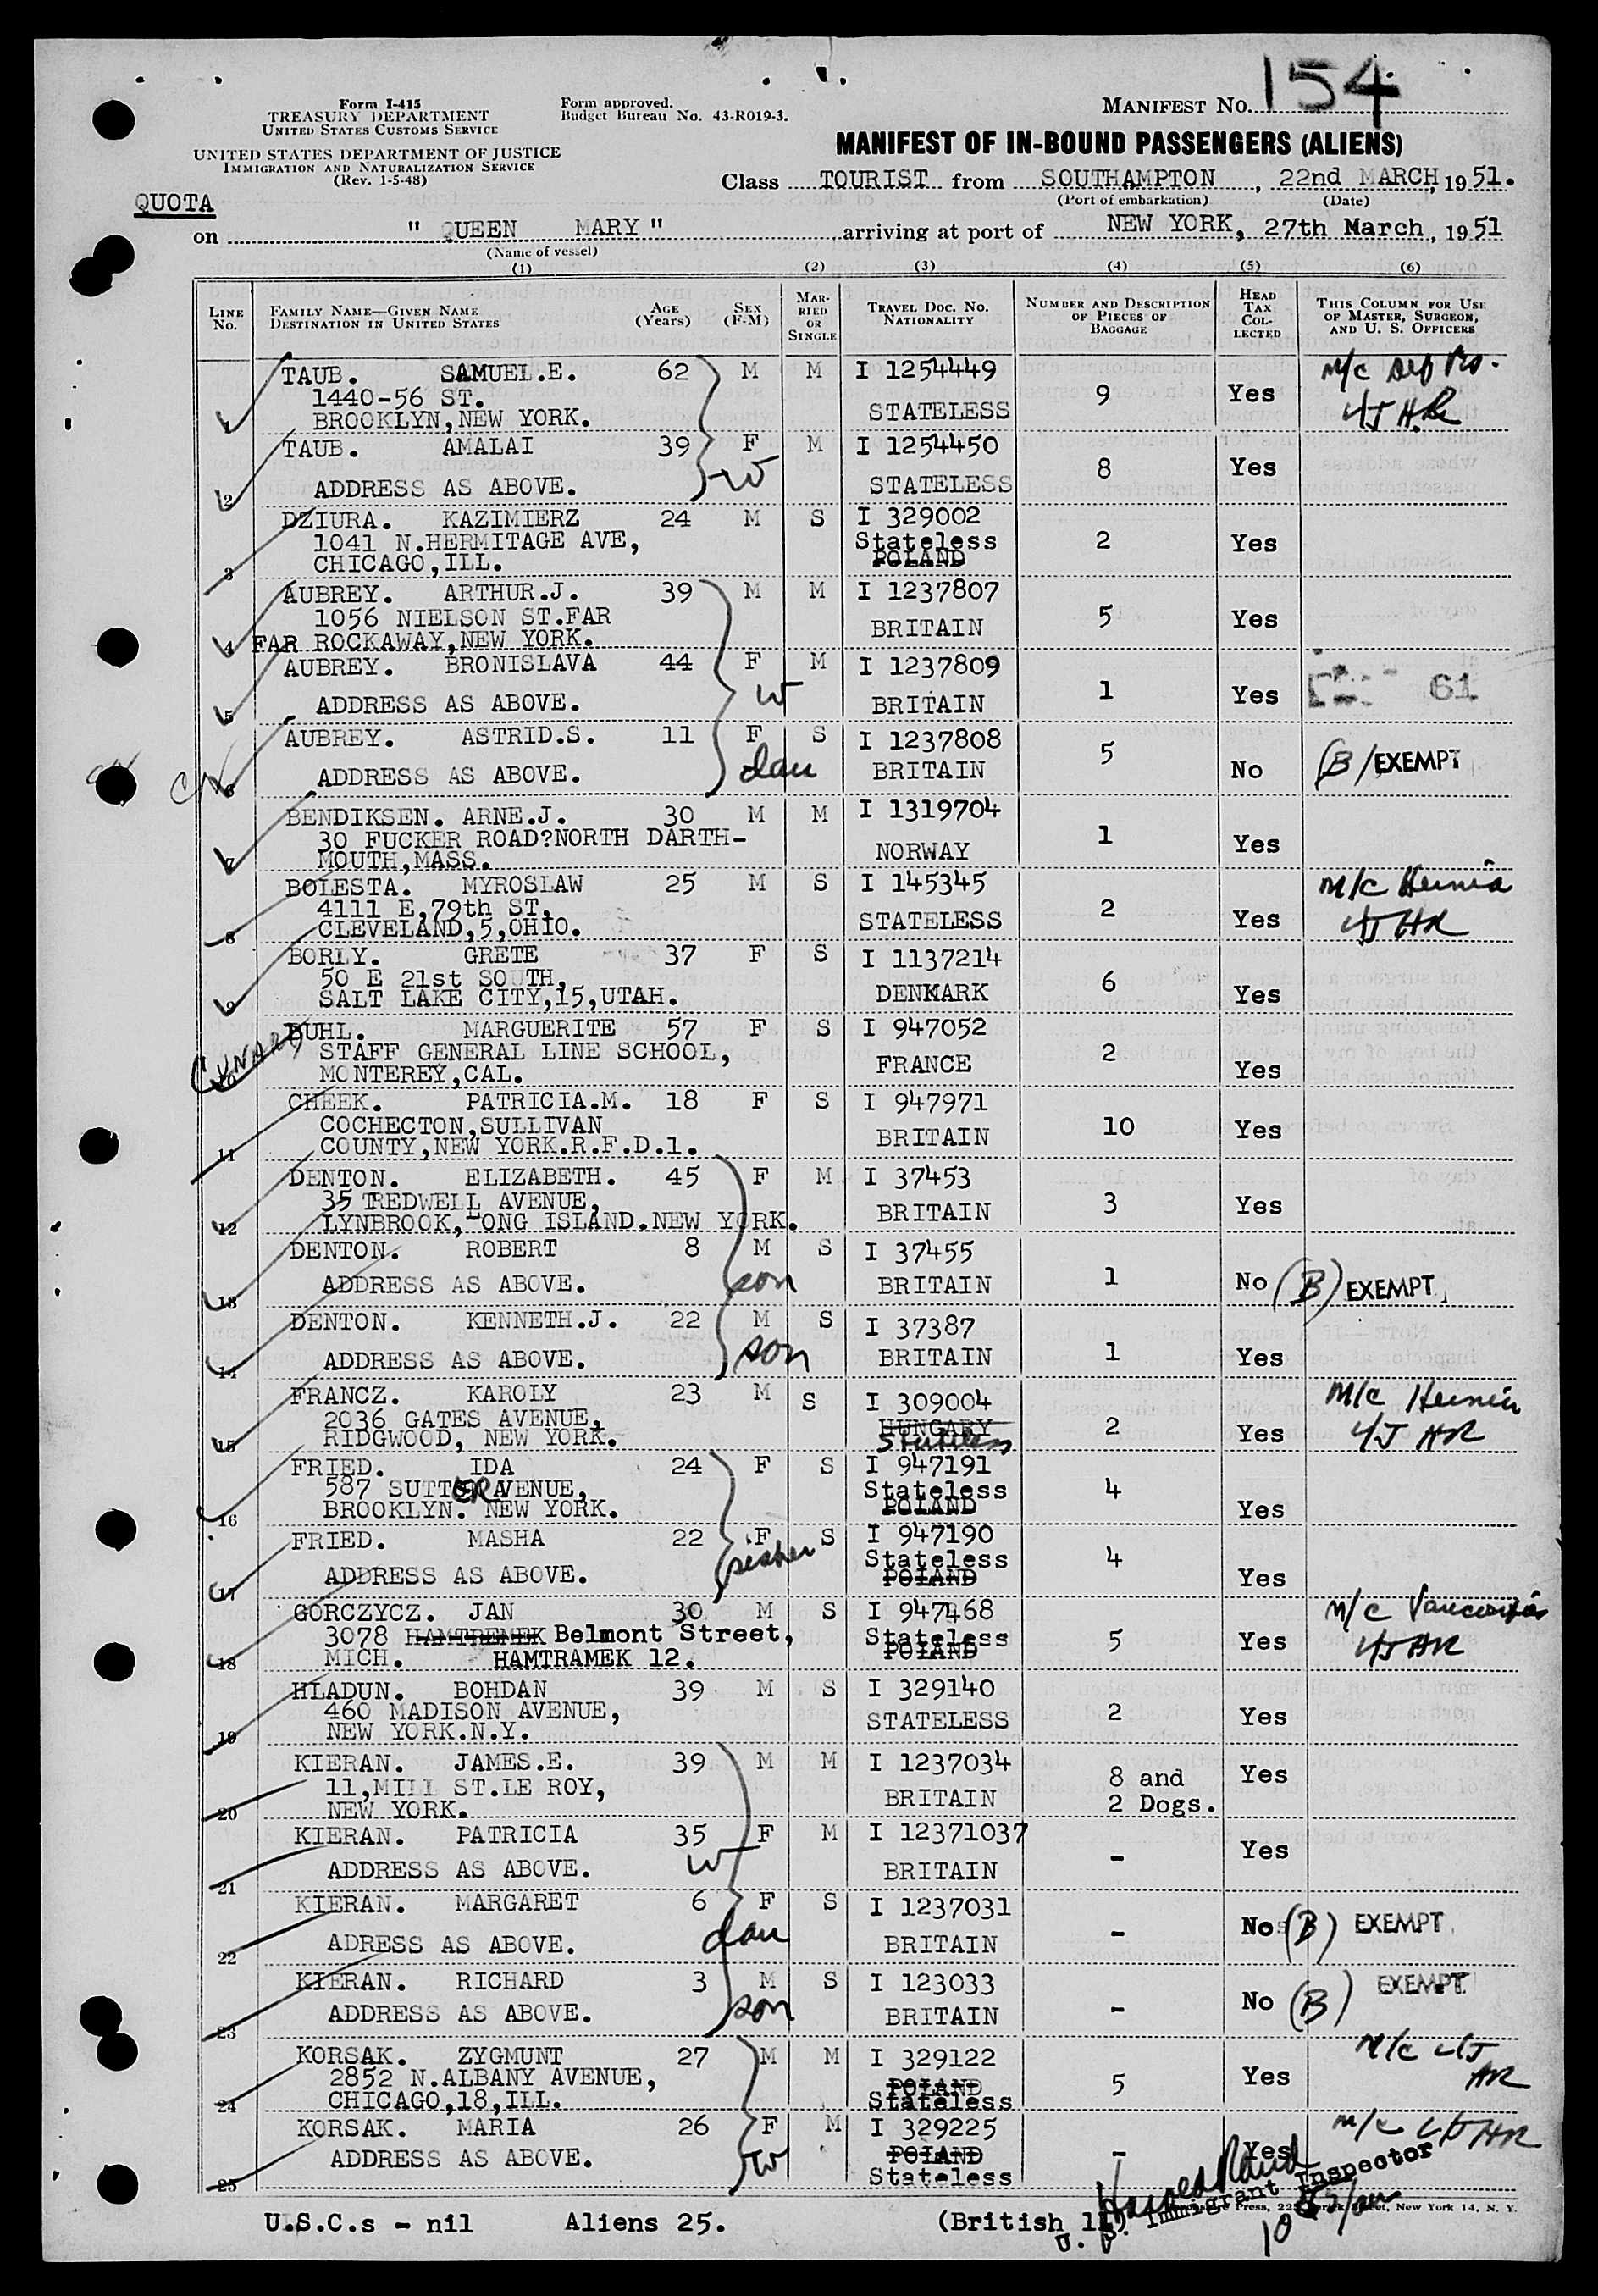 154
Form I-415
TREASURY DEPARTMENT
UNITED STATES CUSTOMS SERVICE
Form approved.
Budget Bureau No. 43-R019-3.
MANIFEST NO.
UNITED STATES DEPARTMENT OF JUSTICE
IMMIGRATION AND NATURALIZATION SERVICE
(Rev. 1-5-48)
MANIFEST OF IN-BOUND PASSENGERS (ALIENS)
QUOTA
Class TOURIST from SOUTHAMPTON, 22nd MARCH, 1951.
(Port of embarkation) (Date)
on " QUEEN MARY " arriving at port of NEW YORK, 27th March, 1951
(Name of vessel)
(1) (2) (3) (4) (5) (6)
LINE No. FAMILY NAME—GIVEN NAME DESTINATION IN UNITED STATES AGE (Years) SEX (F-M) MARRIED OR SINGLE TRAVEL DOC. NO. NATIONALITY NUMBER AND DESCRIPTION OF PIECES OF BAGGAGE HEAD TAX COLLECTED THIS COLUMN FOR USE OF MASTER, SURGEON, AND U. S. OFFICERS
TAUB. SAMUEL.E. 62 M M I 1254449 m/c
1440-56 ST. 9 Yes
1 BROOKLYN, NEW YORK. STATELESS HR
TAUB. AMALAI 39 F M I 1254450
w 8 Yes
2 ADDRESS AS ABOVE. STATELESS
DZIURA. KAZIMIERZ 24 M S I 329002
1041 N.HERMITAGE AVE, Stateless 2 Yes
3 CHICAGO,ILL. POLAND
AUBREY. ARTHUR.J. 39 M M I 1237807
1056 NIELSON ST.FAR BRITAIN 5 Yes
4 FAR ROCKAWAY,NEW YORK.
AUBREY. BRONISLAVA 44 F M I 1237809
w 1 Yes 61
5 ADDRESS AS ABOVE. BRITAIN
AUBREY. ASTRID.S. 11 F S I 1237808 5
6 ADDRESS AS ABOVE. dau BRITAIN No (B) EXEMPT
BENDIKSEN. ARNE.J. 30 M M I 1319704
30 FUCKER ROAD?NORTH DARTH- 1 Yes
7 MOUTH,MASS. NORWAY
BOLESTA. MYROSLAW 25 M S I 145345 m/c Hernia
4111 E,79th ST, 2 Yes
8 CLEVELAND,5,OHIO. STATELESS HR
BORLY. GRETE 37 F S I 1137214
50 E 21st SOUTH, 6
9 SALT LAKE CITY,15,UTAH. DENMARK Yes
CUNARD
BUHL. MARGUERITE 57 F S I 947052
STAFF GENERAL LINE SCHOOL, FRANCE 2
10 MONTEREY,CAL. Yes
CHEEK. PATRICIA.M. 18 F S I 947971
COCHECTON,SULLIVAN 10 Yes
11 COUNTY,NEW YORK.R.F.D.1. BRITAIN
DENTON. ELIZABETH. 45 F M I 37453
35 TREDWELL AVENUE, 3 Yes
12 LYNBROOK, ONG ISLAND.NEW YORK. BRITAIN
DENTON. ROBERT 8 M S I 37455
13 ADDRESS AS ABOVE. son BRITAIN 1 No (B) EXEMPT
DENTON. KENNETH.J. 22 M S I 37387
14 ADDRESS AS ABOVE. son BRITAIN 1 Yes
FRANCZ. KAROLY 23 M S I 309004 m/c
2036 GATES AVENUE, HUNGARY 2 Yes HR
15 RIDGWOOD, NEW YORK. Stateless
FRIED. IDA 24 F S I 947191
587 SUTTER AVENUE, Stateless 4
16 BROOKLYN. NEW YORK. POLAND Yes
FRIED. MASHA 22 F S I 947190
sister Stateless 4
17 ADDRESS AS ABOVE. POLAND Yes
GORCZYCZ. JAN 30 M S I 947468 m/c
3078 HAMTREMEK Belmont Street, Stateless 5 Yes HR
18 MICH. HAMTRAMEK 12. POLAND
HLADUN. BOHDAN 39 M S I 329140
460 MADISON AVENUE, 2 Yes
19 NEW YORK.N.Y. STATELESS
KIERAN. JAMES.E. 39 M M I 1237034
11,MILL ST.LE ROY, 8 and Yes
20 NEW YORK. BRITAIN 2 Dogs.
KIERAN. PATRICIA 35 F M I 12371037
w - Yes
21 ADDRESS AS ABOVE. BRITAIN
KIERAN. MARGARET 6 F S I 1237031
22 ADRESS AS ABOVE. dau BRITAIN - No (B) EXEMPT
KIERAN. RICHARD 3 M S I 123033
23 ADDRESS AS ABOVE. son BRITAIN - No (B) EXEMPT
KORSAK. ZYGMUNT 27 M M I 329122 m/c
2852 N.ALBANY AVENUE, POLAND 5 Yes HR
24 CHICAGO,18,ILL. Stateless
KORSAK. MARIA 26 F M I 329225 m/c HR
25 ADDRESS AS ABOVE. w POLAND - Yes
Stateless
U.S.C.s - nil Aliens 25. (British 11)
U. S. Immigrant Inspector
Press, New York 14, N. Y.